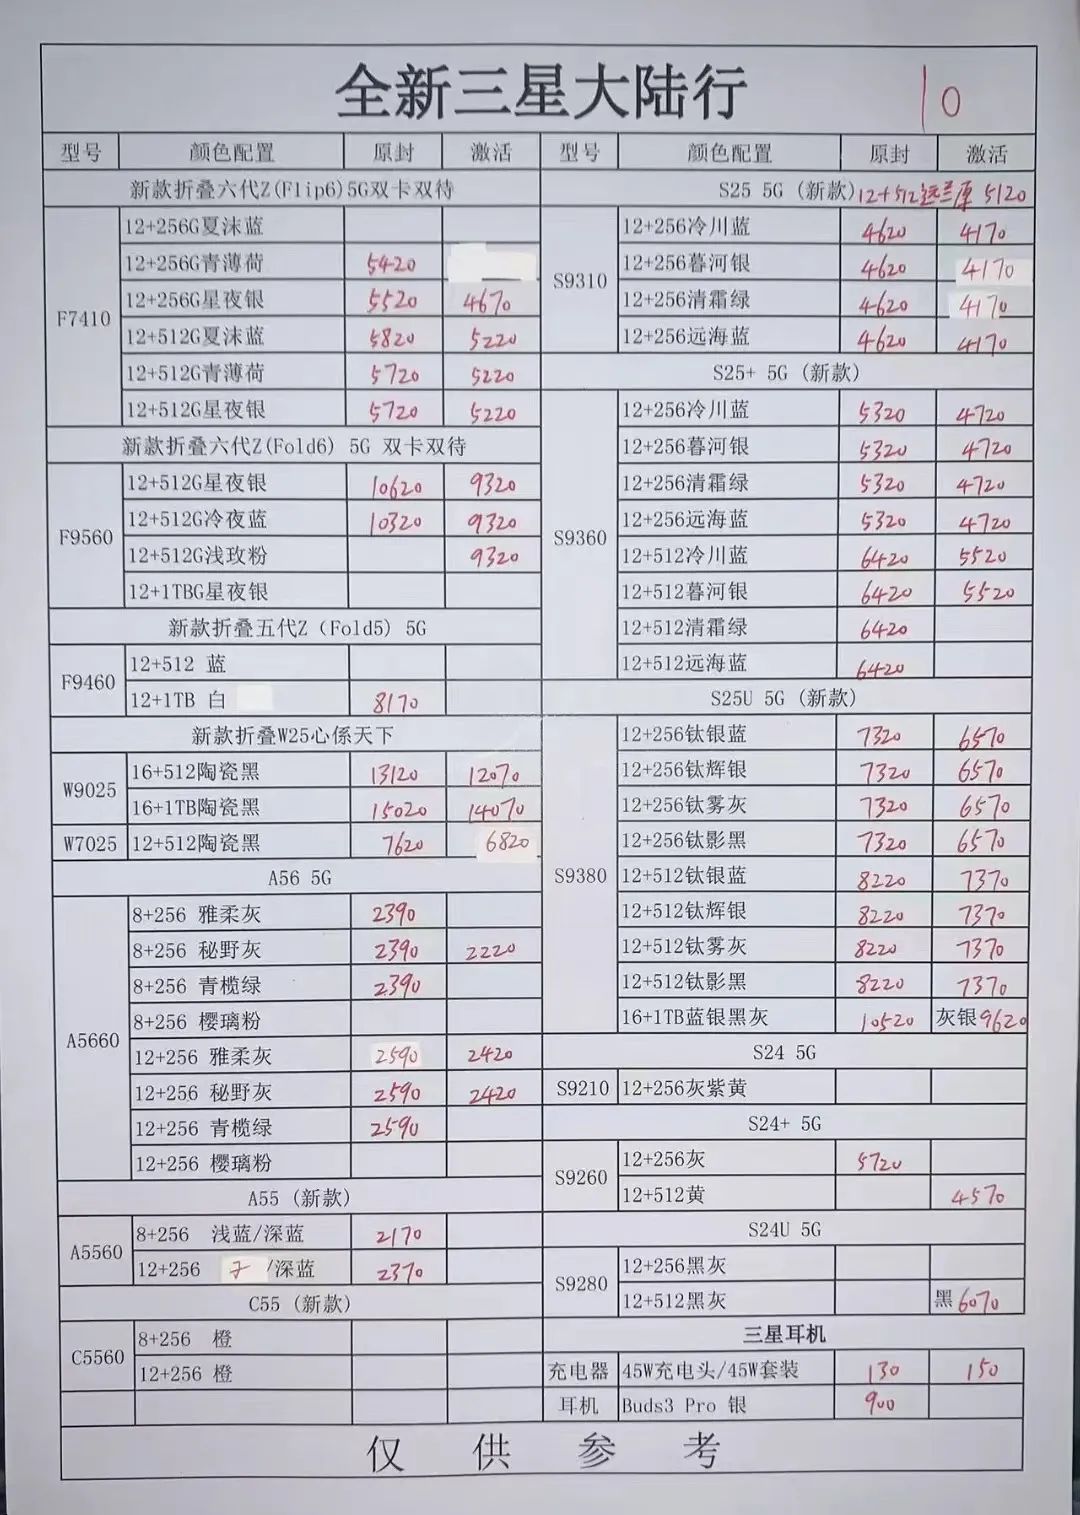 全新三星大陆行 10
型号 颜色配置 原封 激活
新款折叠六代Z(Flip6)5G双卡双待
F7410
12+256G夏沫蓝
12+256G青薄荷 5420
12+256G星夜银 5520 4670
12+512G夏沫蓝 5820 5220
12+512G青薄荷 5720 5220
12+512G星夜银 5720 5220
新款折叠六代Z(Fold6) 5G 双卡双待
F9560
12+512G星夜银 10620 9320
12+512G冷夜蓝 10320 9320
12+512G浅玫粉 9320
12+1TBG星夜银
新款折叠五代Z（Fold5）5G
F9460
12+512 蓝
12+1TB 白 8170
新款折叠W25心係天下
W9025
16+512陶瓷黑 13120 12070
16+1TB陶瓷黑 15020 14070
W7025 12+512陶瓷黑 7620 6820
A56 5G
A5660
8+256 雅柔灰 2390
8+256 秘野灰 2390 2220
8+256 青榄绿 2390
8+256 樱璃粉
12+256 雅柔灰 2590 2420
12+256 秘野灰 2590 2420
12+256 青榄绿 2590
12+256 樱璃粉
A55（新款）
A5560
8+256 浅蓝/深蓝 2170
12+256 /深蓝 2370
C55（新款）
C5560
8+256 橙
12+256 橙
型号 颜色配置 原封 激活
S25 5G（新款）12+512远兰原 5120
S9310
12+256冷川蓝 4620 4170
12+256暮河银 4620 4170
12+256清霜绿 4620 4170
12+256远海蓝 4620 4170
S25+ 5G（新款）
S9360
12+256冷川蓝 5320 4720
12+256暮河银 5320 4720
12+256清霜绿 5320 4720
12+256远海蓝 5320 4720
12+512冷川蓝 6420 5520
12+512暮河银 6420 5520
12+512清霜绿 6420
12+512远海蓝 6420
S25U 5G（新款）
S9380
12+256钛银蓝 7320 6570
12+256钛辉银 7320 6570
12+256钛雾灰 7320 6570
12+256钛影黑 7320 6570
12+512钛银蓝 8220 7370
12+512钛辉银 8220 7370
12+512钛雾灰 8220 7370
12+512钛影黑 8220 7370
16+1TB蓝银黑灰 10520 灰银9620
S24 5G
S9210 12+256灰紫黄
S24+ 5G
S9260
12+256灰 5720
12+512黄 4570
S24U 5G
S9280
12+256黑灰
12+512黑灰 黑6070
三星耳机
充电器 45W充电头/45W套装 130 150
耳机 Buds3 Pro 银 900
仅供参考